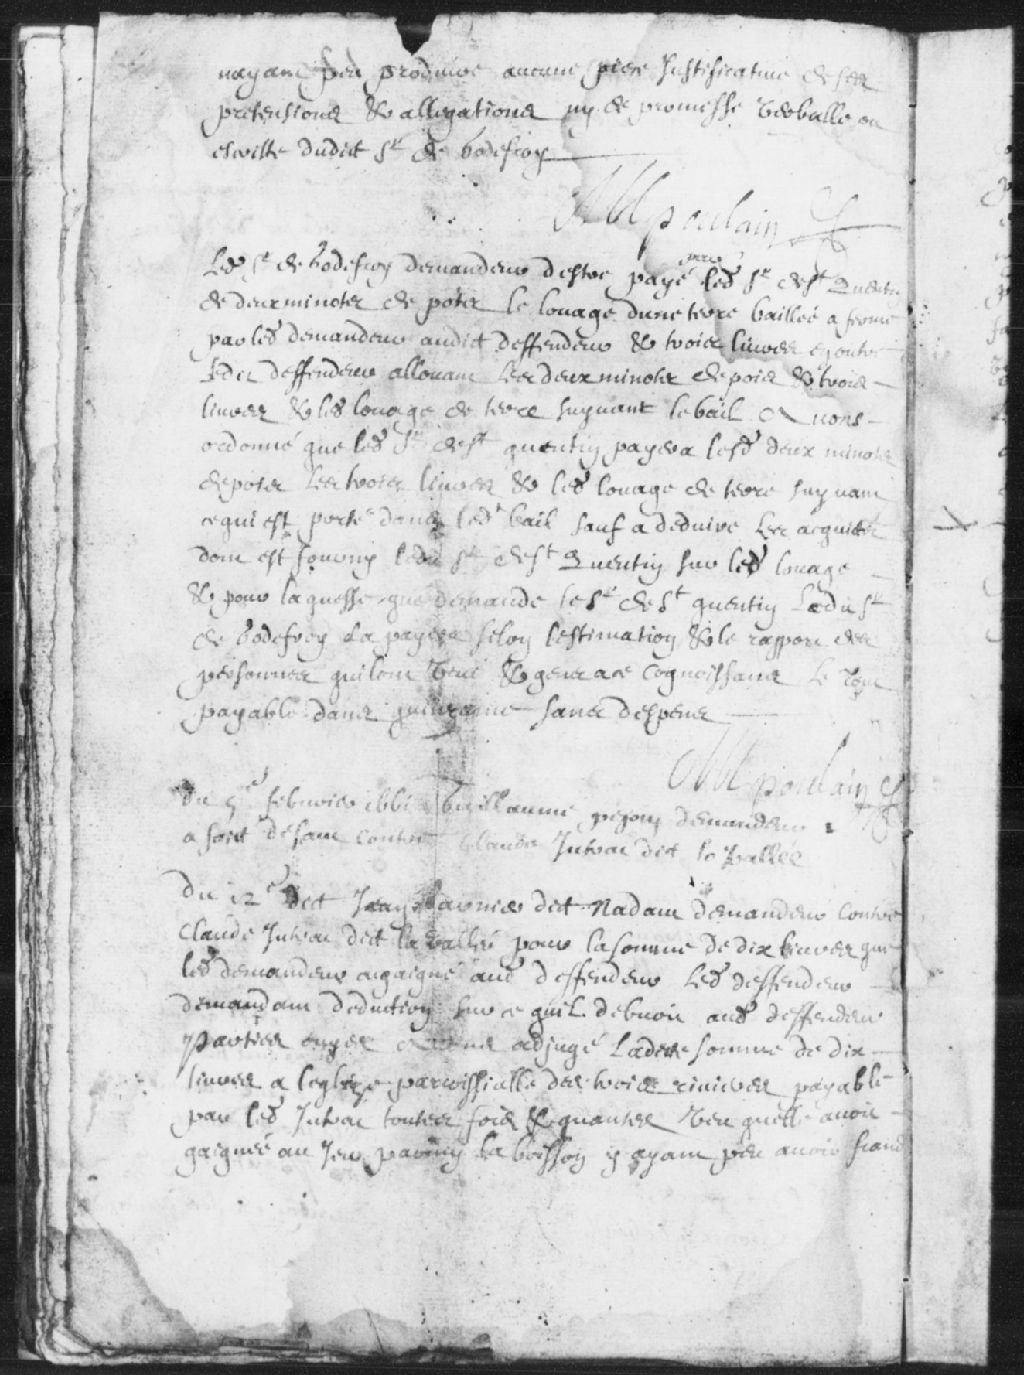 nayant peu produire aucune piece Justificatiue de ses
pretensions & allegations ny de promesse verballe ou
escritte dudict Sr de Godefroy
M poulain
Led Sr de Godefroy demandeur destre payé par led Sr de St Quentin
de deux minots de pois le louage dune terre baillée a ferme
par led demandeur audict deffendeur & trois liures
Ledit deffendeur allouant les deux minots de pois & trois
liures & led louage de terre suyuant le bail Nous
ordonné que led Sr de St quentin payera lesd deux minots
de pois les trois liures & led louage de terre suyuant
ce qui est porté dans led bail sauf a deduire les acquits
dont est fourny ledit Sr de St Quentin sur led louage
& pour la que demande le Sr de St quentin Ledit Sr
de Godefroy la payera selon lestimation & le rapport des
personnes qui lont veue & cognoissance Le tout
payable dans quinzaine sans despens
M poulain
Du 5e febvrier 1661 Guillaume pepin demandeur
a fait defaut contre Claude Jutrat dict la Vallée
Du 12e dict Jean dict Nadau demandeur contre
Claude Jutrat dict la vallée pour la somme de dix liures que
led demandeur a gaigné aud deffendeur Led deffendeur
demandant deduction sur ce quil debuoit aud deffendeur
Parties ouyes auons adjugé Ladite somme de dix
liures a leglise parroissialle des trois riuieres payable
par led Jutrat touttes fois & quantes veu quelle auoit
gaignée au Jeu parmy la boisson y ayant peu auoir fraud